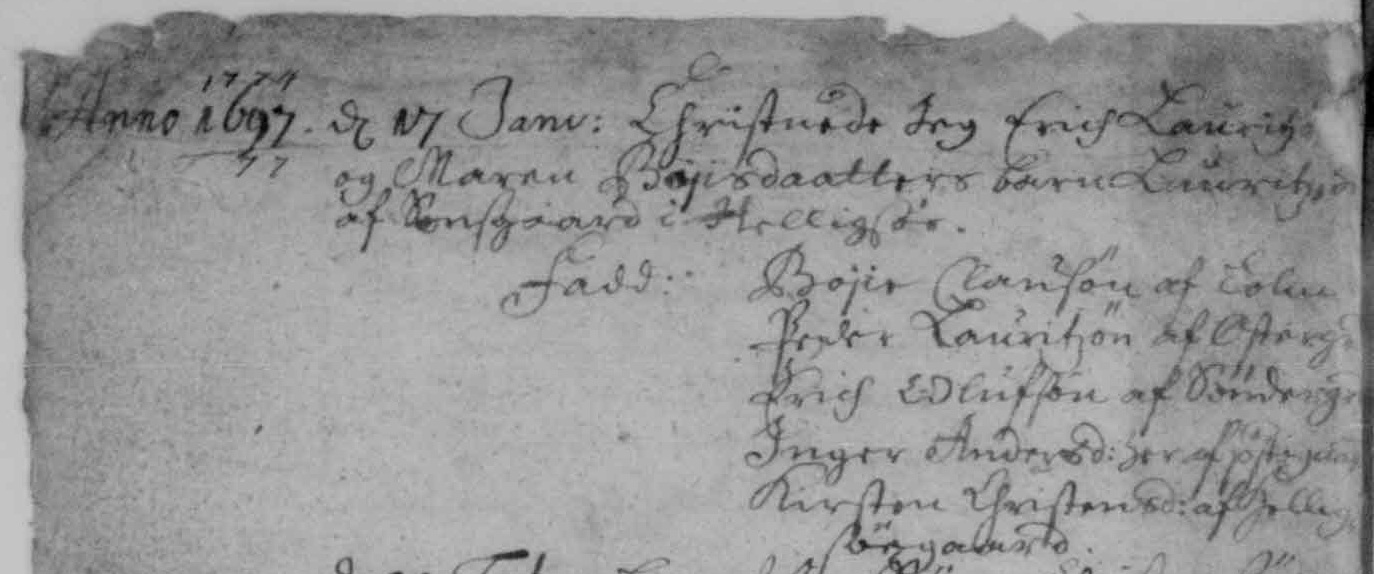 1774
Anno 1697. d 17 Janu: Christnede Jeg Erich Lauritz
77
og Maren Bojisdaatters barn Lauritz
af i Helligsöe.
Fadd: Bojie Clausön af
Peder Lauritzön af Österg
Erich Olufsön af Sönderg
Inger Andersd: her af
Kirsten Christensd: af Hellig
söegaard.